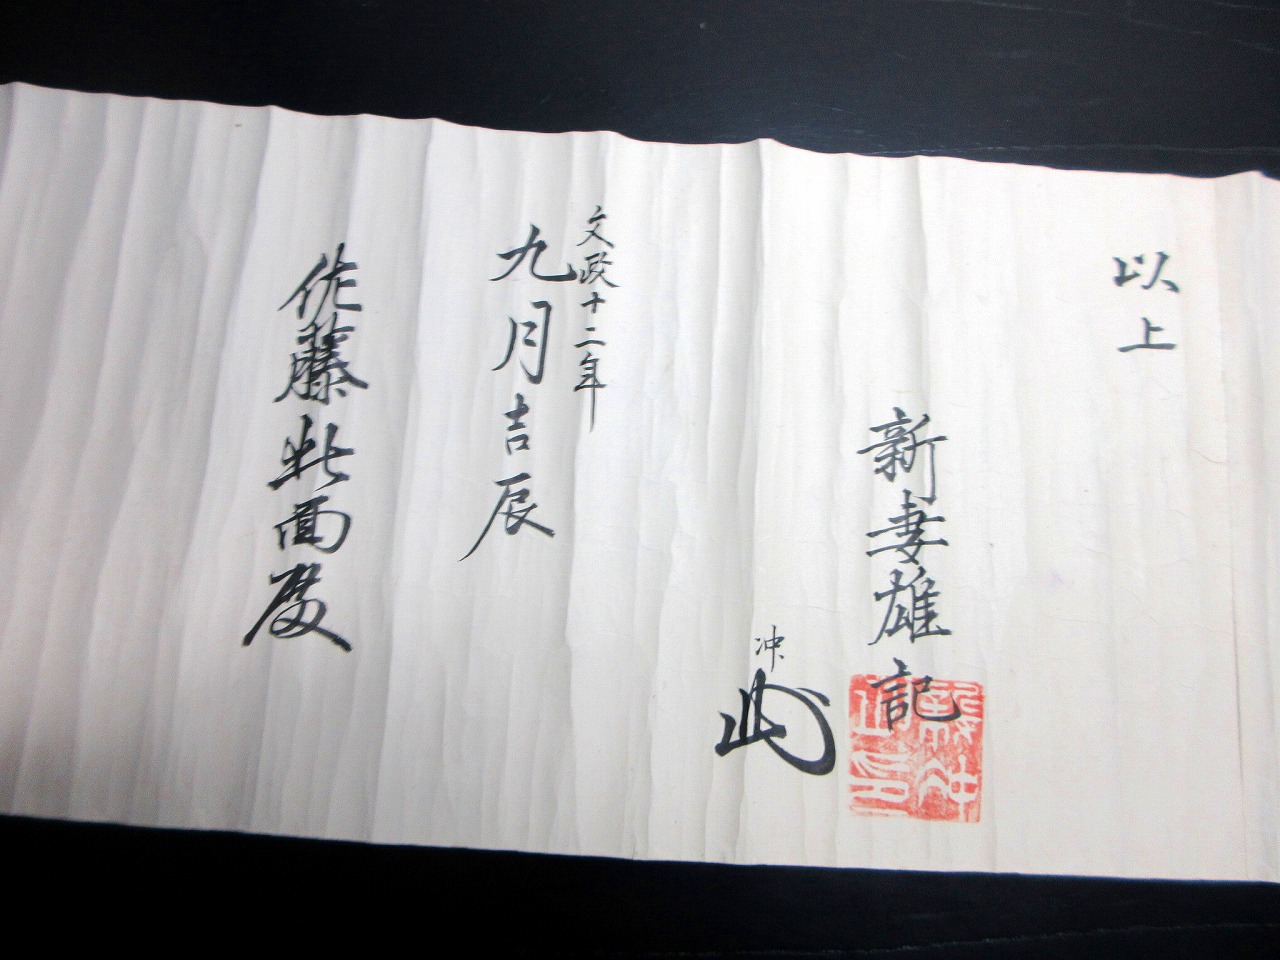 以上
新妻雄記
冲
文政十二年
九月吉辰
佐藤此面殿